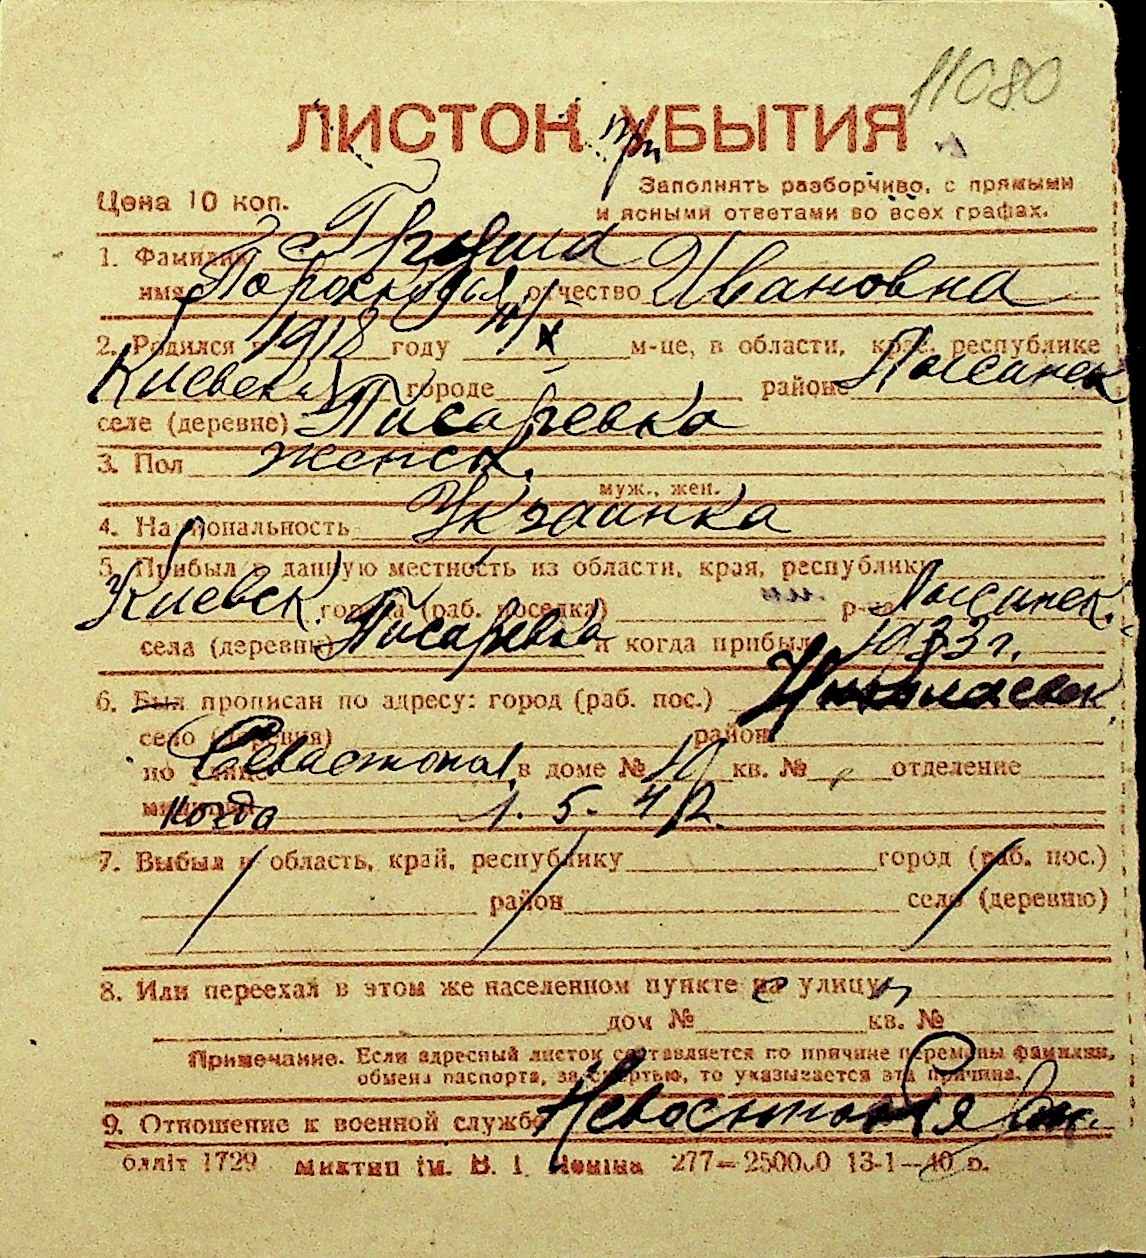 11080
ЛИСТОК при УБЫТИЯ
Цена 10 коп. Заполнять разборчиво, с прямыми
и ясными ответами во всех графах.
1. Фамилия
имя отчество Ивановна
2. Родился в 1918 году X м-це, в области, крае, республике
Киевск. городе районе Лысянск
селе (деревне) Писаревка
3. Пол женск.
муж., жен.
4. Национальность Украинка
5. Прибыл в данную местность из области, края, республики
Киевск. города (раб. поселка) р-на Лысянск.
села (деревни) Писаревка и когда прибыл 1933 г.
6. Был прописан по адресу: город (раб. пос.)
село (деревня) район
по улице Севастопол. в доме № 10 кв. № отделение
милиции когда 1. 5. 42.
7. Выбыл в область, край, республику город (раб. пос.)
район село (деревню)
8. Или переехал в этом же населенном пункте на улицу
дом № кв. №
Примечание. Если адресный листок составляется по причине перемены фамилии,
обмена паспорта, за смертью, то указывается эта причина.
9. Отношение к военной службе
блліт 1729 миктип ім. В. І. Леніна 277—250000 13-1—40 р.